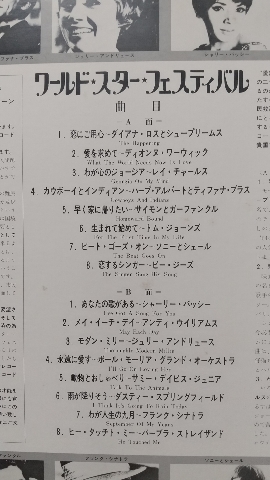 シャーリー・バッシー
ワールド・スター・フェスティバル
曲目
— A 面 —
1. 恋にご用心~ダイアナ・ロスとシュープリームス
The Happening
2. 愛を求めて~ディオンヌ・ワーウィック
What The World Needs Now Is Love
3. わが心のジョージア~レイ・チャールズ
Georgia On My Mind
4. カウボーイとインディアン~ハーブ・アルパートとティファナ・ブラス
Cowboys And Indians
5. 早く家に帰りたい~サイモンとガーファンクル
Homeward Bound
6. 生まれて始めて~トム・ジョーンズ
For The First Time In My Life
7. ビート・ゴーズ・オン~ソニーとシェール
The Beat Goes On
8. 恋するシンガー~ビー・ジーズ
The Singer Sang His Song
— B 面 —
1. あなたの歌がある~シャーリー・バッシー
I've Got A Song For You
2. メイ・イーチ・デイ~アンディ・ウイリアムス
May Each Day
3. モダン・ミリー~ジュリー・アンドリュース
Thoroughly Modern Millie
4. 永遠に愛す~ポール・モーリア・グランド・オーケストラ
I'll Go On Loving Her
5. 動物とおしゃべり~サミー・デイビス・ジュニア
Talk To The Animals
6. 雨が降りそう~ダスティー・スプリングフィールド
I Think It's Going To Rain Today
7. わが人生の九月~フランク・シナトラ
September Of My Years
8. ヒー・タッチト・ミー~バーブラ・ストレイザンド
He Touched Me
フランク・シナトラ
ソニーとシェール